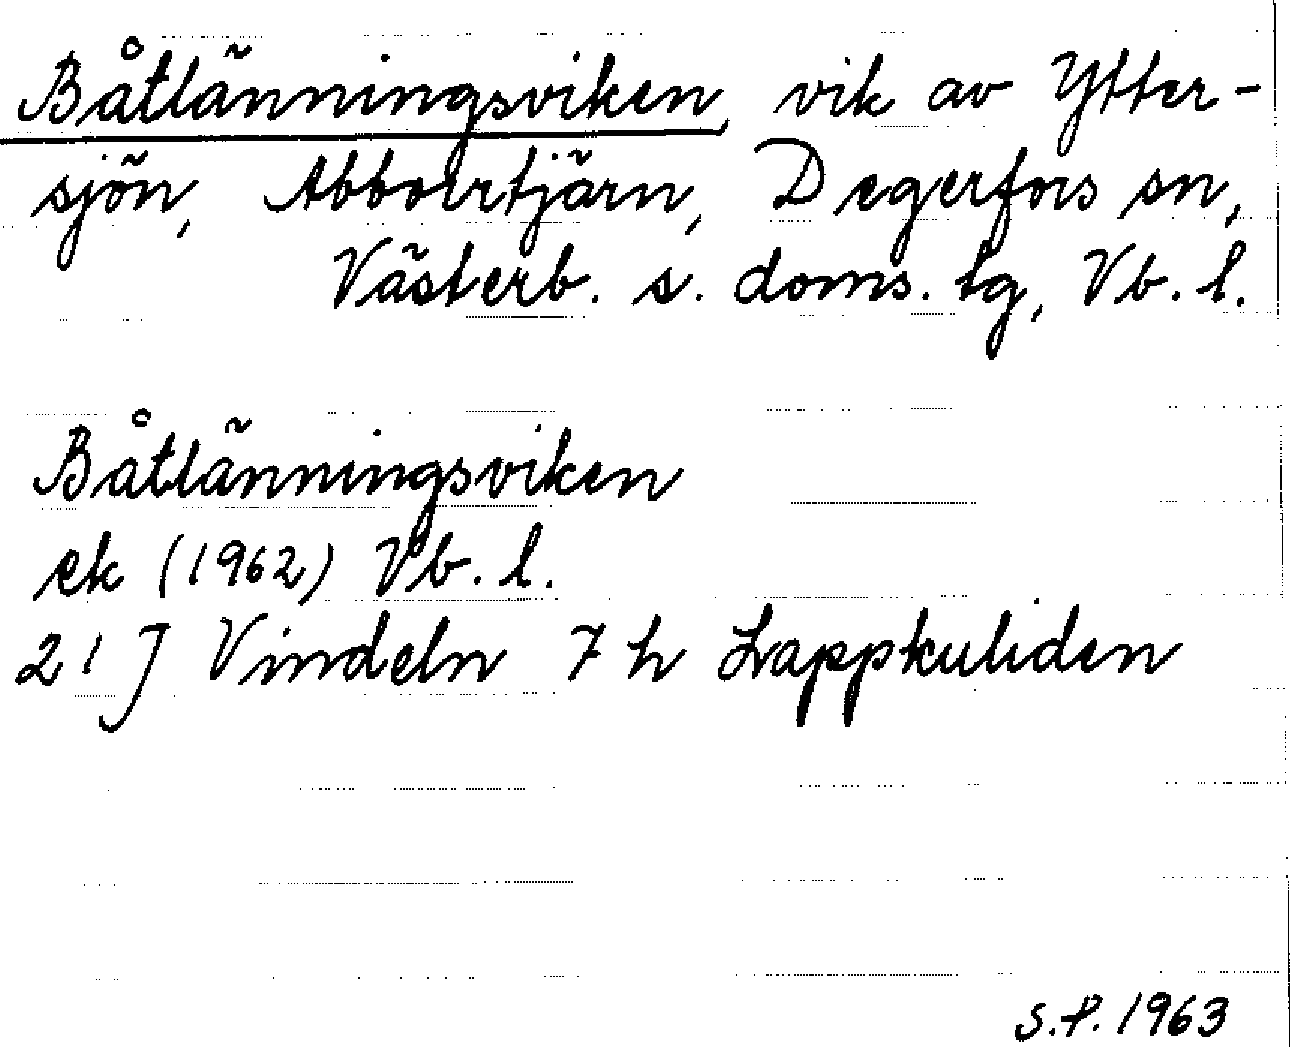 Båtlänningsviken, vik av Ytter-
sjön, Abborrtjärn, Degerfors sn,
Västerb. s. doms. tg, Vb. l.
Båtlänningsviken
ek (1962) Vb. l.
21 J Vindeln 7 h Lappkuliden
S.P. 1963